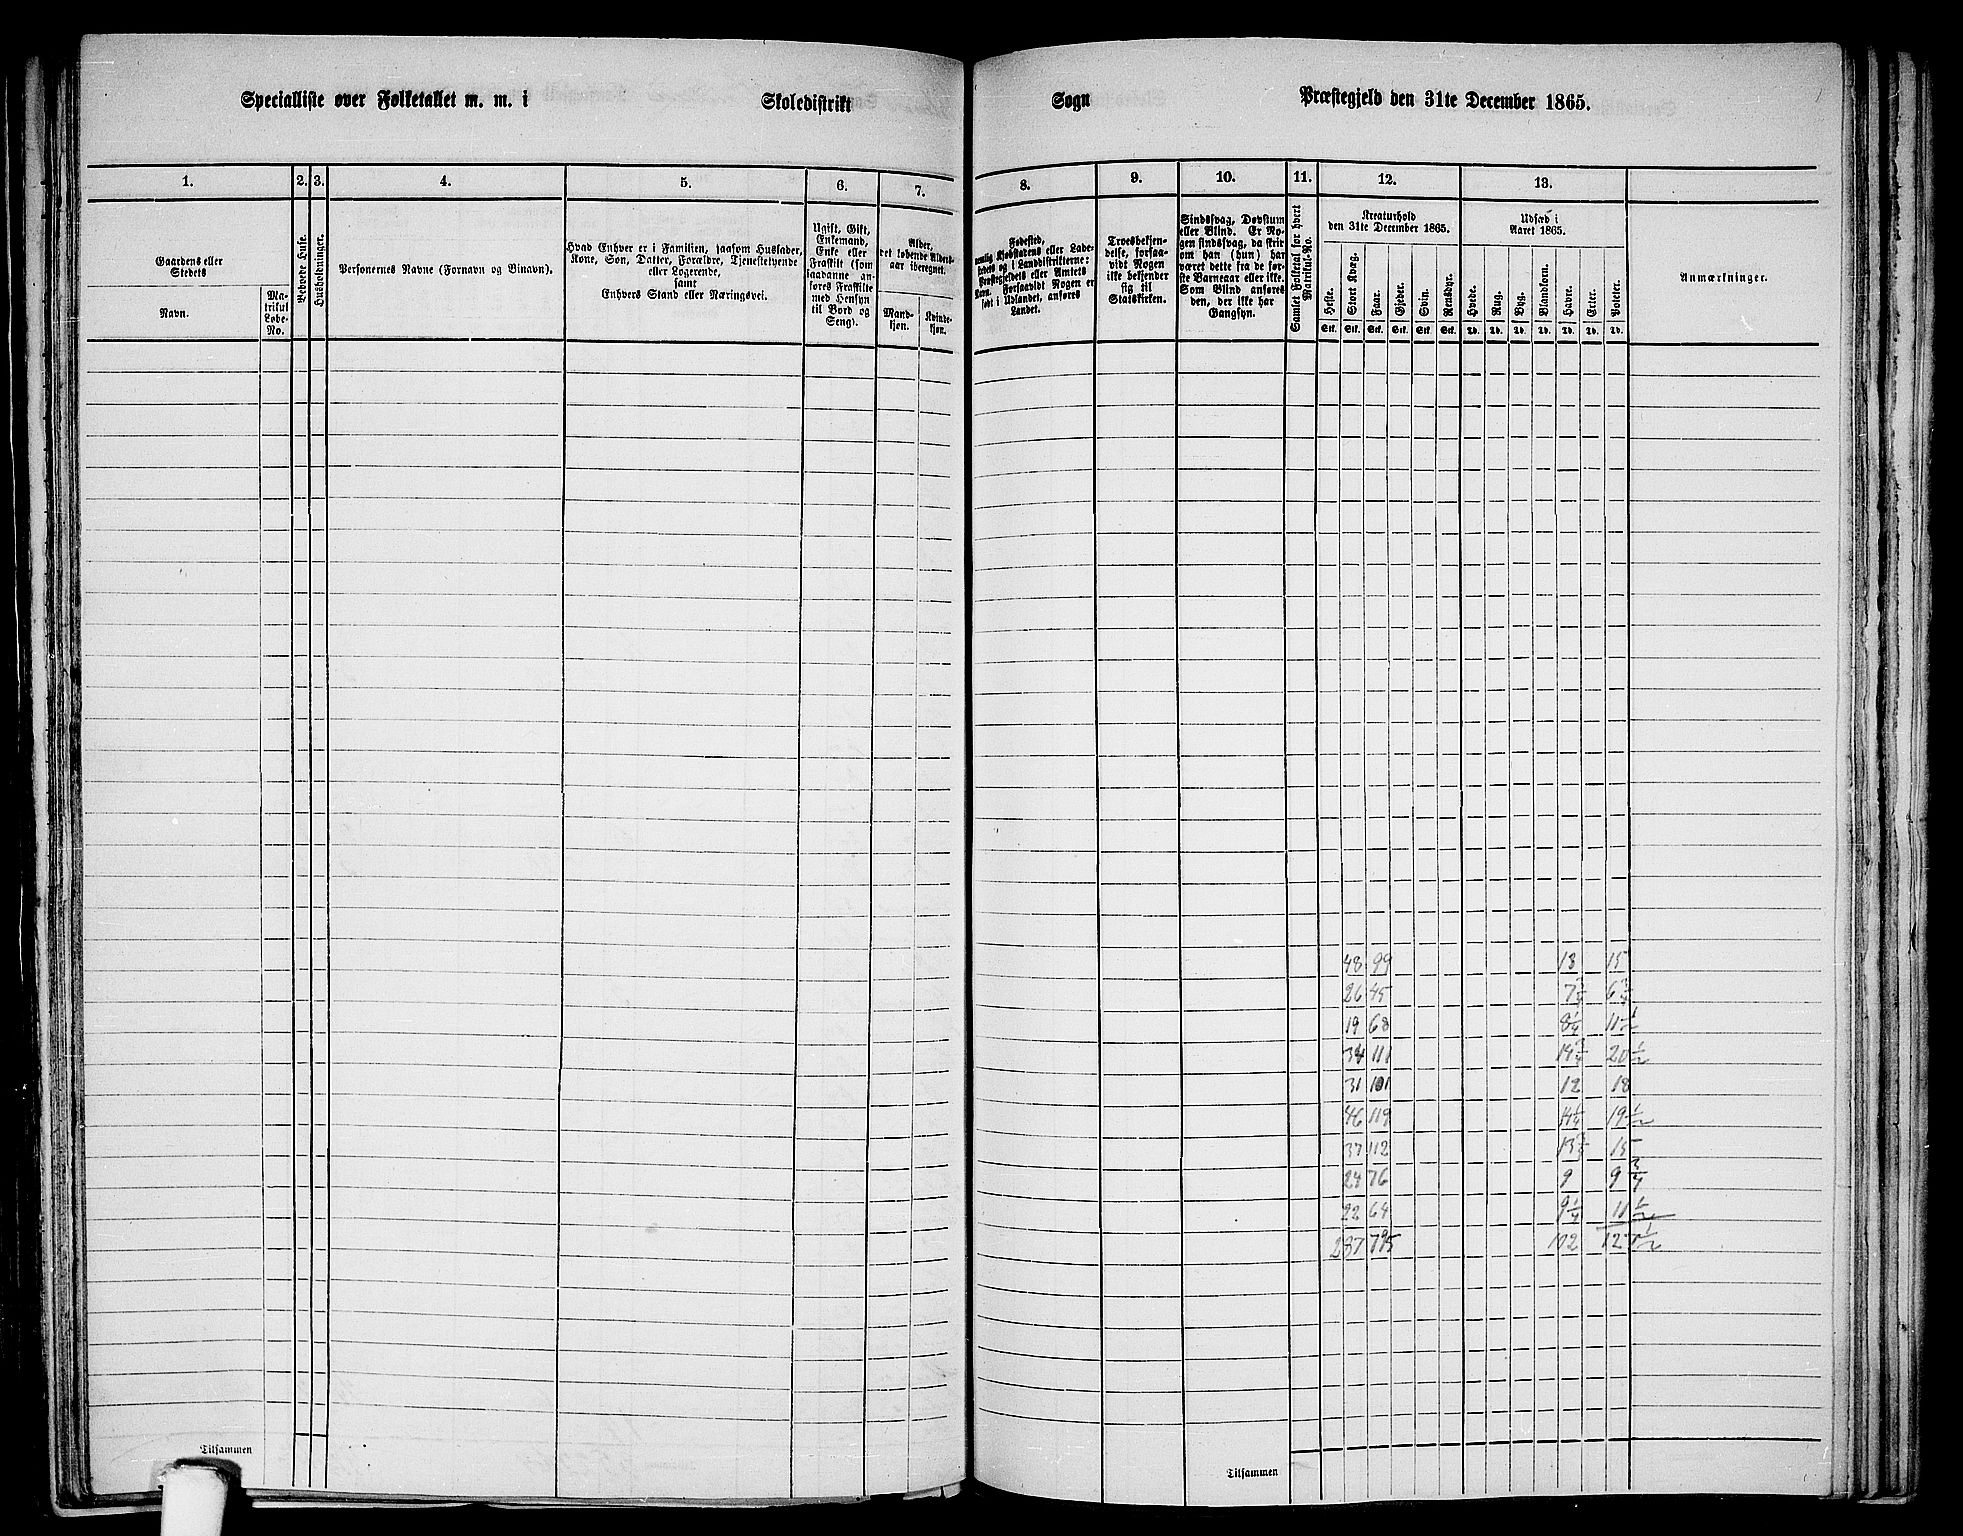 Specialliste over Folketallet m. m. i Skoledistrikt Sogn Præstegjeld den 31te December 1865.
1. 2. 3. 4. 5. 6. 7. 8. 9. 10. 11. 12. 13.
Gaardens eller
Stedets
Navn.
Ma-
trikul
Løbe-
No.
Bebyede Huse.
Husholdninger.
Personernes Navne (Fornavn og Binavn).
Hvad Enhver er i Familien, saasom Husfader,
Kone, Søn, Datter, Forældre, Tjenestetyende
eller Logerende,
samt
Enhvers Stand eller Næringsvei.
Ugift, Gift,
Enkemand,
Enke eller
Fraskilt (som
saadanne an-
føres Fraskilte
med Hensyn
til Bord og
Seng).
Alder,
det løbende Alders-
aar iberegnet.
Mand-
kjøn.
Kvinde-
kjøn.
Fødested,
nemlig Kjøbstadens eller Lade-
stedets og i Landdistrikterne:
Præstegjeldets eller Amtets
Navn. Forsaavidt Nogen er
født i Udlandet, anføres
Landet.
Troesbekjen-
delse, forsaa-
vidt Nogen
ikke bekjender
sig til
Statskirken.
Sindssvag, Døvstum
eller Blind. Er No-
gen sindssvag, da skrives
om han (hun) har
været dette fra de før-
ste Barneaar eller ikke.
Som Blind anføres
den, der ikke har
Gangsyn.
Samlet Folketal for hvert
Matrikul-No.
Kreaturhold
den 31te December 1865.
Heste.
Stort Kvæg.
Faar.
Gjeder.
Svin.
Rensdyr.
Stk. Stk. Stk. Stk. Stk. Stk.
Udsæd i
Aaret 1865.
Hvede.
Rug.
Byg.
Blandkorn.
Havre.
Erter.
Poteter.
Td. Td. Td. Td. Td. Td. Td.
Anmærkninger.
48 99 13 15
26 45 7½ 6¾
19 68 8¼ 11½
34 111 14¾ 20½
31 101 12 18
46 119 14¼ 19½
37 112 13¾ 15
24 76 9 9¾
22 64 9¼ 11½
287 795 102 127½
Tilsammen
Tilsammen